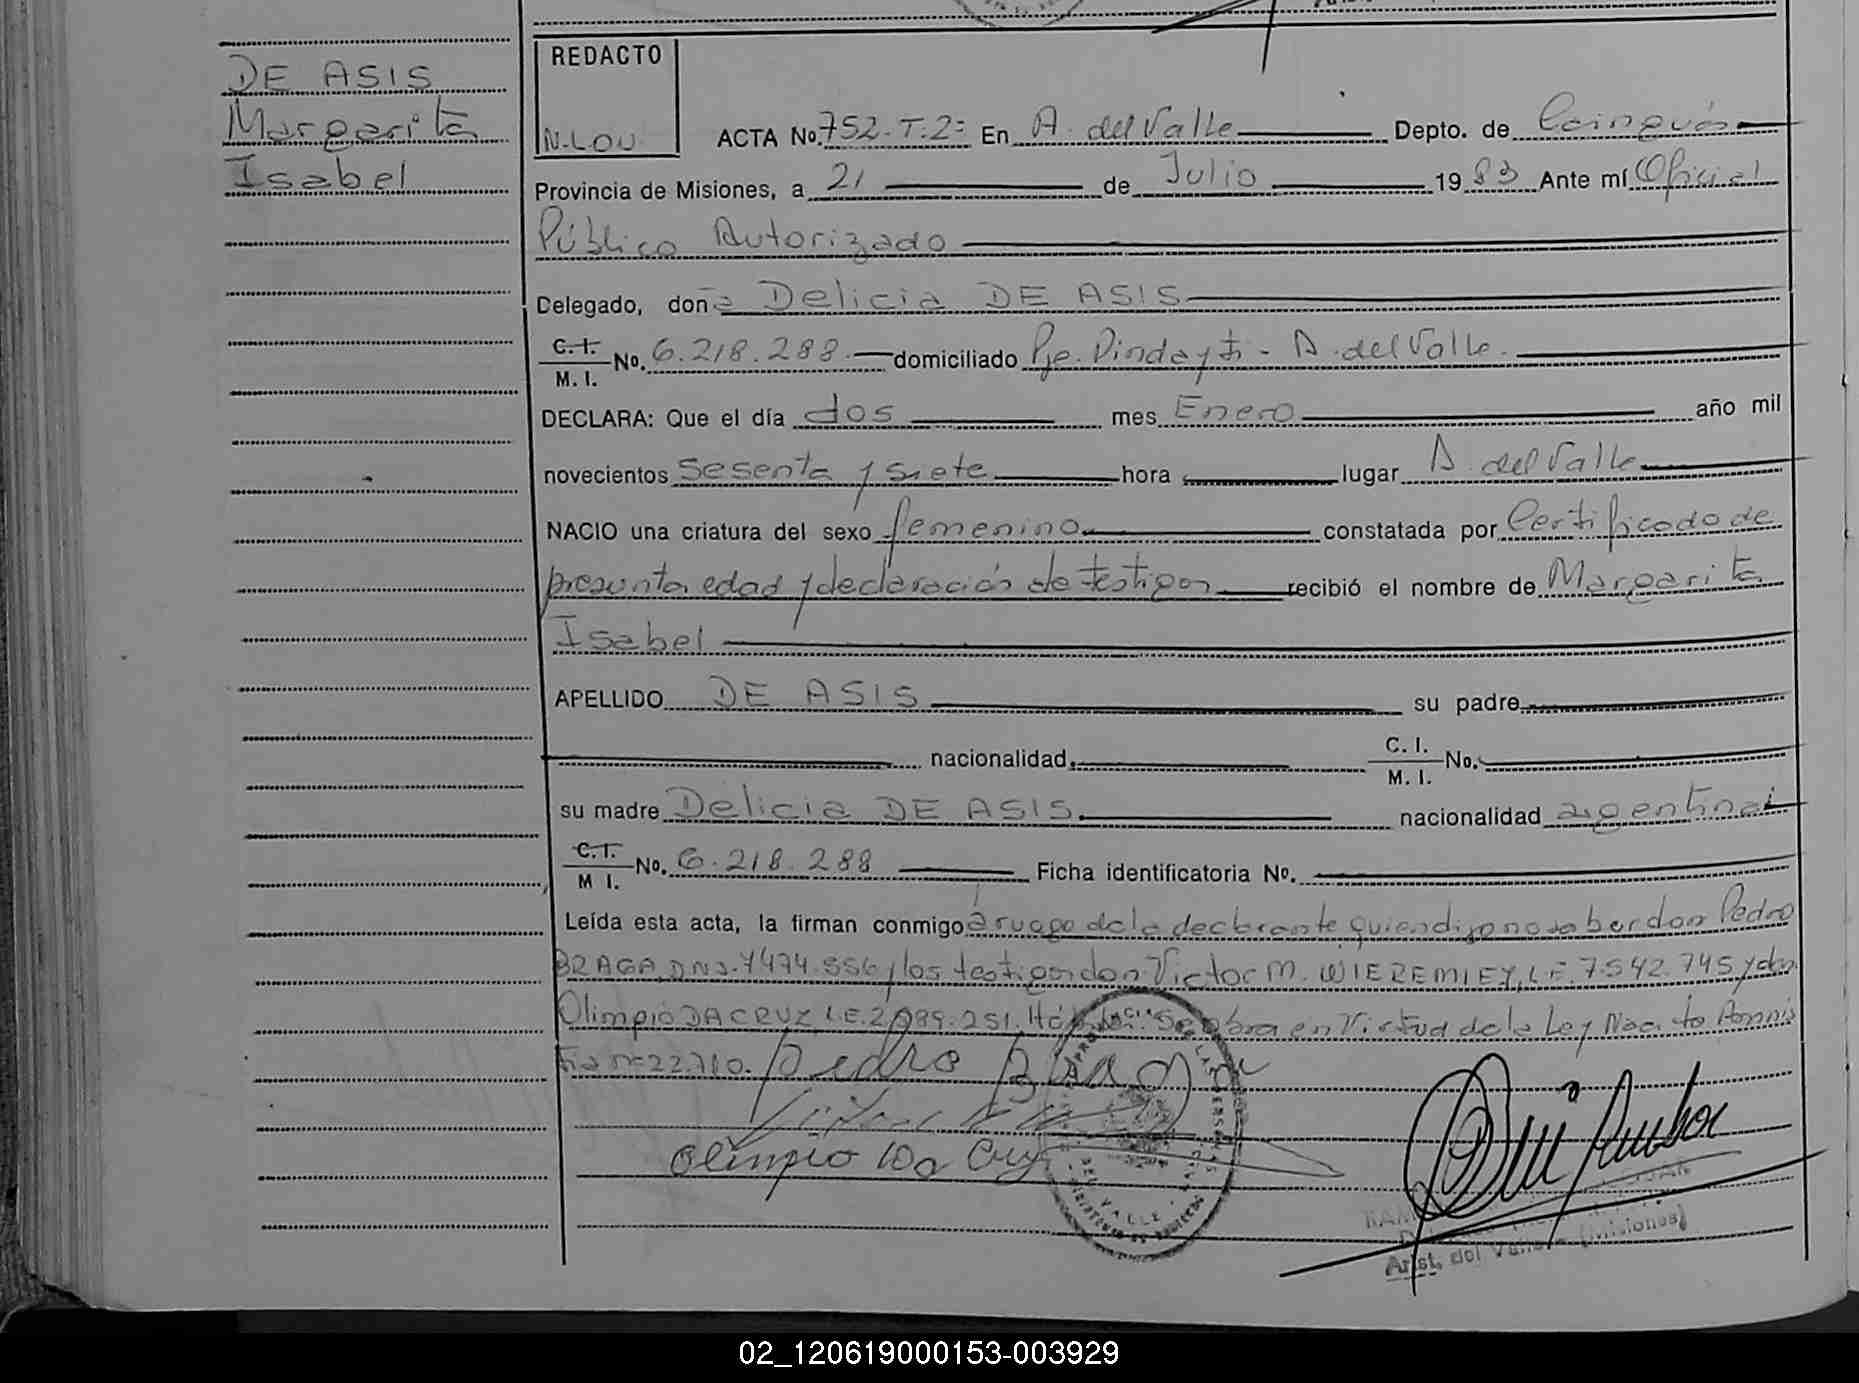 DE ASIS
Margarita
Isabel
REDACTO
N.LOU
ACTA No. 752. T. 2º En A. del Valle Depto. de Cainguás
Provincia de Misiones, a 21 de Julio 1983 Ante mí Oficial
Público Autorizado
Delegado, doña Delicia DE ASIS
C.I. M. I. No. 6.218.288 domiciliado Pje. Pindayti - A. del Valle.
DECLARA: Que el día dos mes Enero año mil
novecientos sesenta y siete hora lugar A. del Valle
NACIO una criatura del sexo femenino constatada por Certificado de
presunta edad y declaración de testigos recibió el nombre de Margarita
Isabel
APELLIDO DE ASIS su padre
nacionalidad C. I. M. I. No.
su madre Delicia DE ASIS nacionalidad argentina
C.I. M I. No. 6.218.288 Ficha identificatoria No.
Leída esta acta, la firman conmigo a ruego de la declarante quien dijo no saber don Pedro
BRAGA, DNI. 7474.556 y los testigos don Victor M. WIEREMIEY, L.E. 7.542.745 y don
Olimpio DA CRUZ L.E. 2.089.251. Se labra en Virtud de la Ley Nac. to Amnis
tia nº 22.710. Pedro Braga
Olimpio Da Cruz
Arist. del Valle (Misiones)
02_120619000153-003929